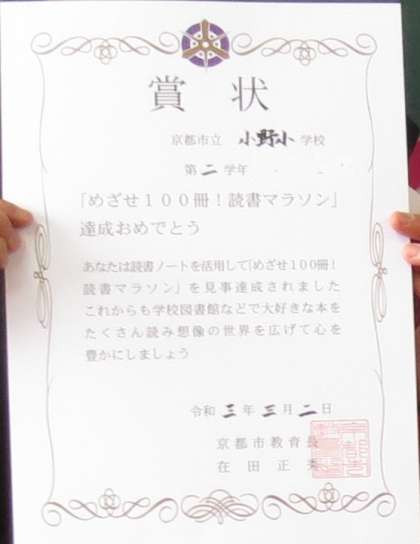 賞状
京都市立 小野小 学校
第 二 学年
「めざせ１００冊！読書マラソン」
達成おめでとう
あなたは読書ノートを活用して「めざせ１００冊！
読書マラソン」を見事達成されました
これからも学校図書館などで大好きな本を
たくさん読み想像の世界を広げて心を
豊かにしましょう
令和 三 年 三 月 二 日
京都市教育長
在田正秀